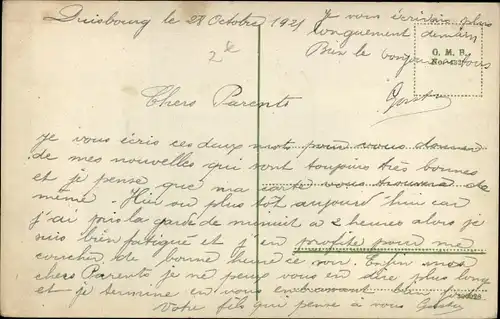 Duisbourg le 28 Octobre 1921
2e
Je vous écrirai plus
longuement demain
Bien le bonjour à tous
G. M. B.
No.
Chers Parents
Je vous écris ces deux mots pour vous donner
de mes nouvelles qui sont toujours très bonnes
et je pense que ma carte vous trouvera de
même. Hier ou plus tôt aujourd'hui car
j'ai pris la garde de minuit a 2 heures alors je
suis bien fatigué et j'en profite pour me
coucher de bonne heure ce soir. Enfin mes
chers Parents je ne peux vous en dire plus long
et je termine en vous embrassant bien fort
Votre fils qui pense à vous